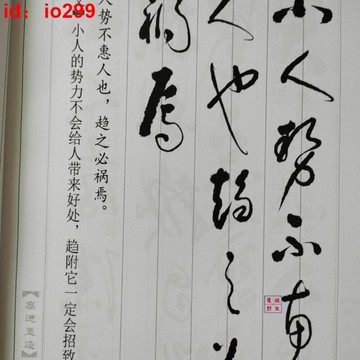 id: io299
小人势不惠
人也趋之必
祸焉
人势不惠人也，趋之必祸焉。
小人的势力不会给人带来好处，趋附它一定会招致